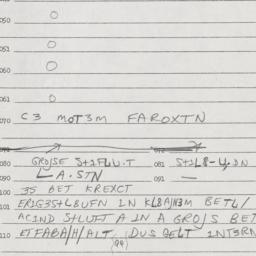 050
051
050
060
061
070 C3 MOT3M FAROXTN
080 GRO/SE S+1FLU.T 081 S+1L8-4.DN
090 LA.STN 091 —
100 35 BET KREXCT
101 ER1G3S+L8UFN IN KL8A/H3M BETL/
ACIND S+LUFT A IN A GRO/S BET
110 ETFABA/H/ALT. DUS GELT INTERN
(99)